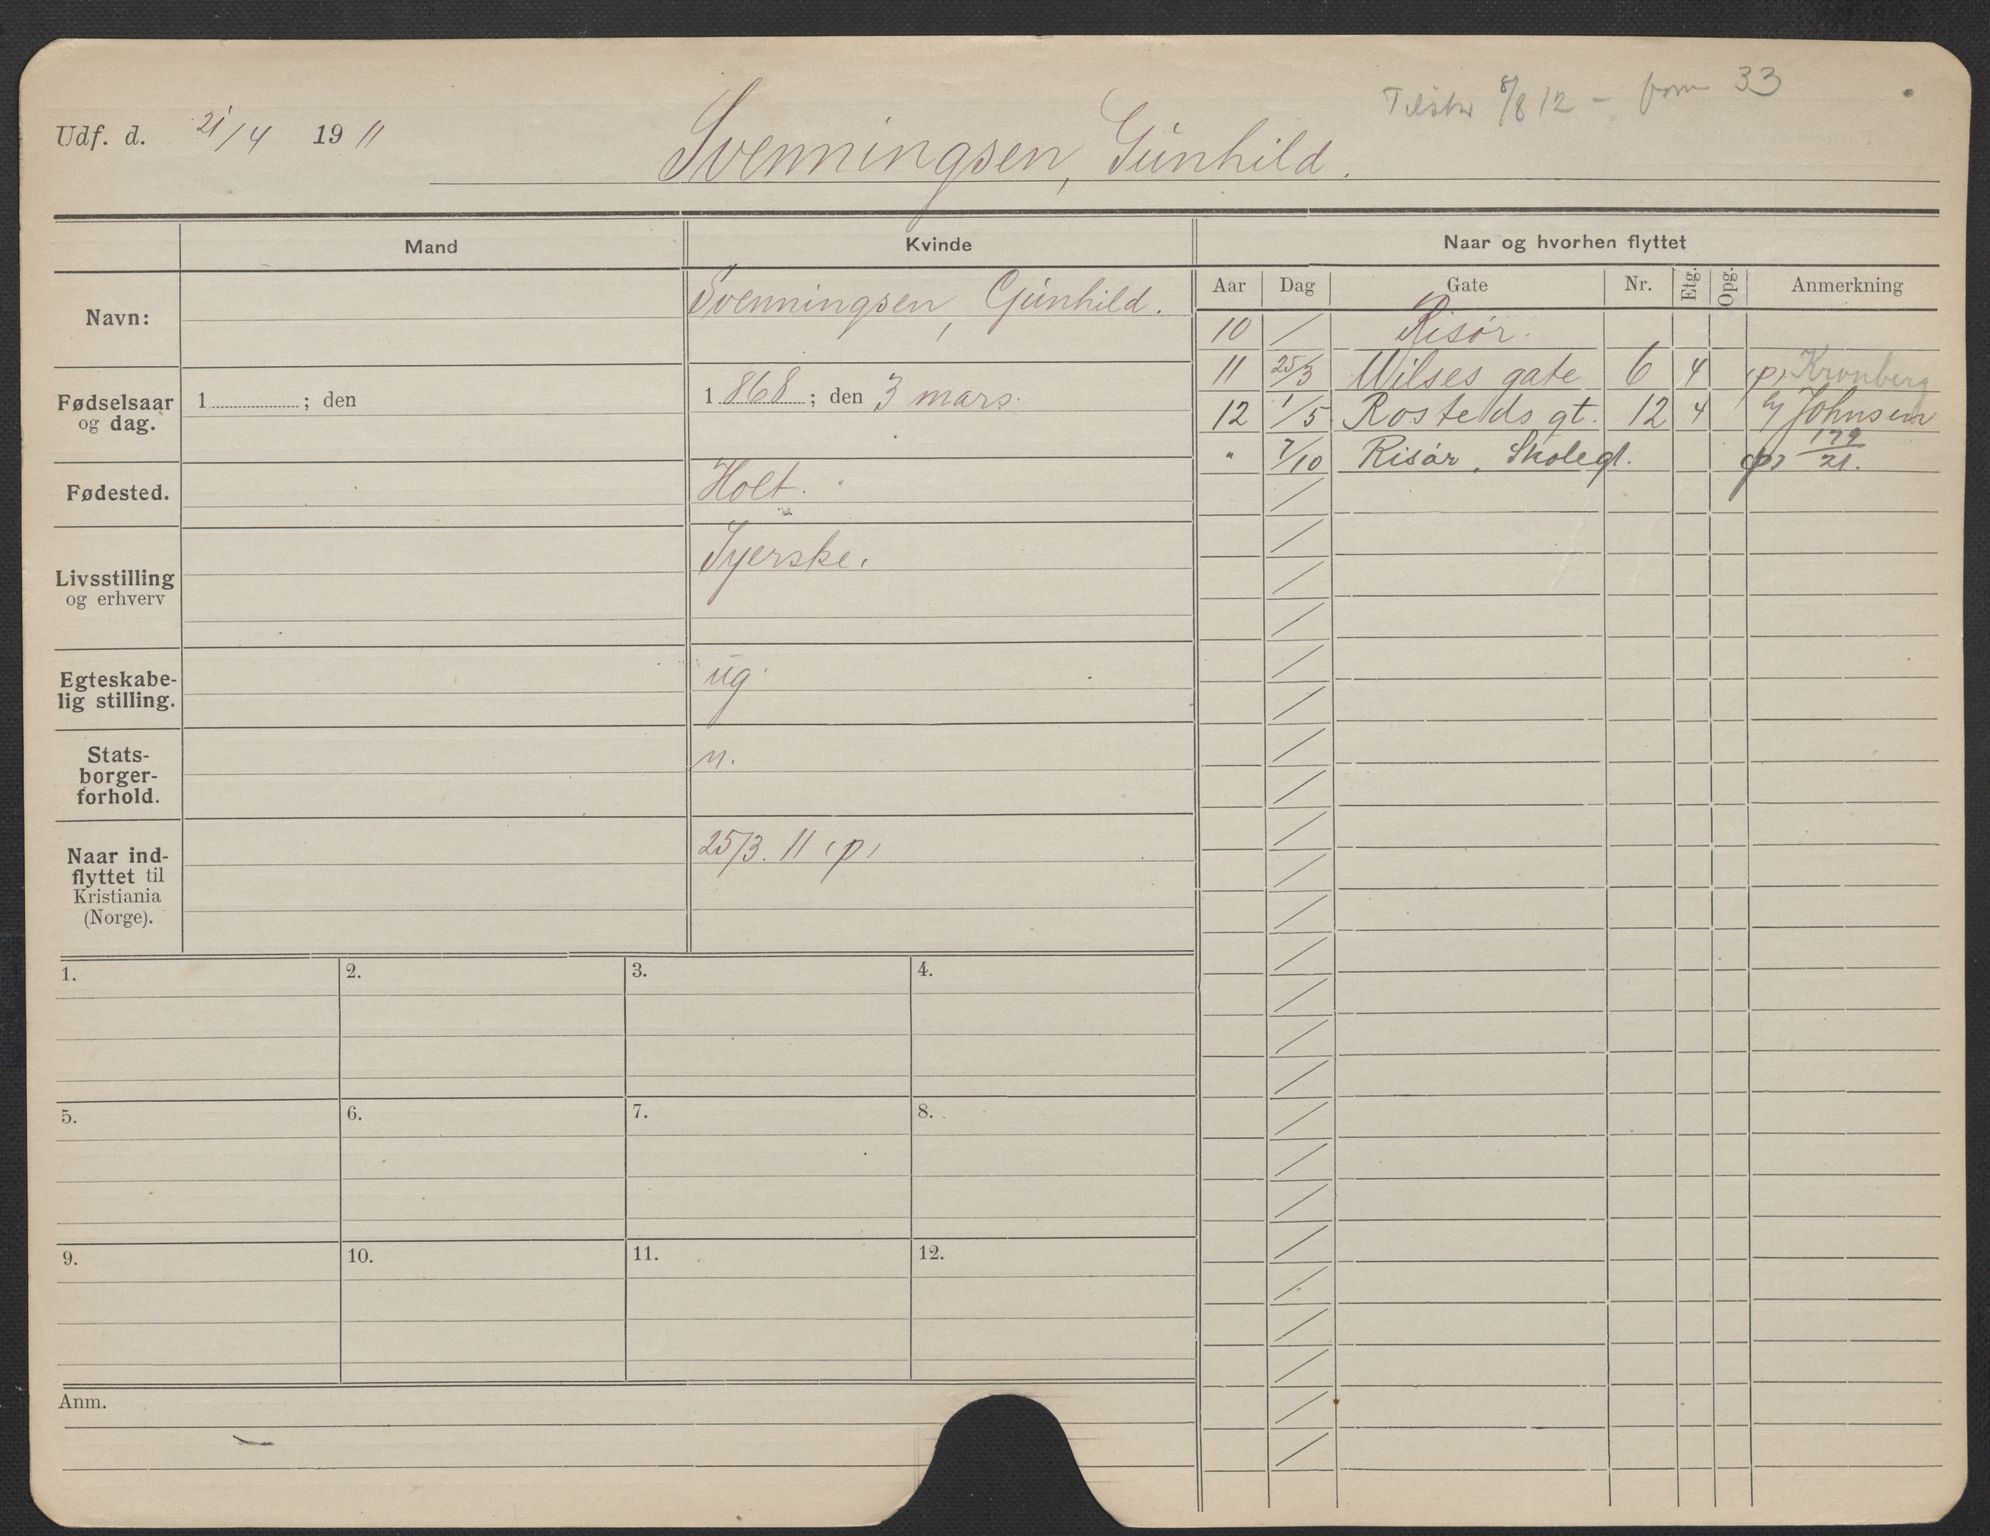 Tilstr 8/8 12 - 33
Udf. d. 21/4 1911
Svenningsen, Gunhild.
Mand
Kvinde
Naar og hvorhen flyttet
Aar Dag Gate Nr. Etg. Opg. Anmerkning
Navn:
Svenningsen, Gunhild.
10 / Risør.
11 25/3 Wilses gate 6 4 (p) Kronberg
12 1/5 Rosteds gt. 12 4 Johnsen
" 7/10 Risør. Skolegt. (p) 179/21.
Fødselsaar
og dag.
1 ; den
1868; den 3 mars.
Fødested.
Holt.
Livsstilling
og erhverv
Syerske.
Egteskabe-
lig stilling.
ug.
Stats-
borger-
forhold.
n.
Naar ind-
flyttet til
Kristiania
(Norge).
25/3. 11 (p)
1. 2. 3. 4.
5. 6. 7. 8.
9. 10. 11. 12.
Anm.